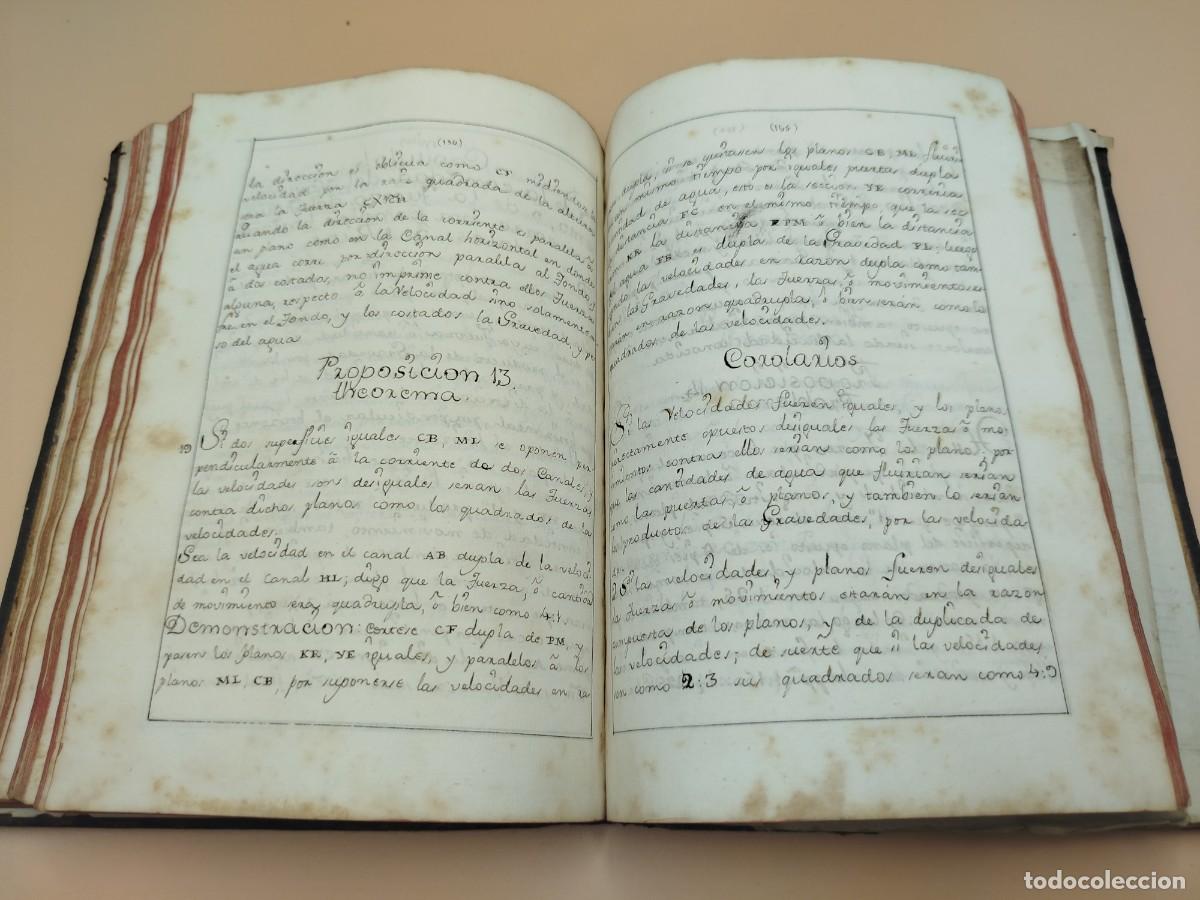 (130)
la dirección es oblicua como CF midiendo la
velocidad por la raiz quadrada de la altura
sea la Fuerza
cuando la dirección de la corriente es paralela à
un plano como en la Canal horizontal en donde
el agua corre por dirección paralela al Fondo, y
à dos costados, no imprime contra ellos Fuerza
alguna, respecto à la Velocidad sino solamente
en el Fondo, y los costados la Gravedad, y pe
so del agua
Proposicion 13.
theorema.
19 Si dos superficies iguales CB, ML se oponen per
pendicularmente à la corriente de dos Canales, y
las velocidades sons desiguales seran las Fuerzas
contra dichos planos como los quadrados de las
velocidades.
Sea la velocidad en el canal AB dupla de la veloci
dad en el canal HL; digo que la Fuerza, ò cantidad
de movimiento era quadrupla, ò bien como 4:1
Demonstracion: Cortese CF dupla de PM, y
pasen los planos KR, YE iguales, y paralelos à los
planos ML, CB, por suponerse las velocidades en ra
dupla, si se quitasen los planos CB, ML fluirian
mismo tiempo por iguales puertas dupla
cantidad de agua, esto es la seccion YE correria
distancia FC en el mismo tiempo que la sec
KR la distancia RPM ò bien la distancia
agua FE en dupla de la Gravedad PL; luego
las velocidades en razon dupla como tam
las Gravedades, las Fuerzas ò movimientos es
en razon quadrupla, ò bien serán como los
quadrados de las velocidades.
Corolarios
Si las Velocidades fueren iguales, y los planos
directamente opuestos desiguales las Fuerzas ò mo
vimientos contra ellos serian como los planos por
que las cantidades de agua que fluirian serian
como las puertas, ò planos, y tambien lo serian
los productos de las Gravedades, por las velocida
2 Si las velocidades y planos fueren desiguales
las fuerzas ò movimientos estaran en la razon
compuesta de los planos, y de la duplicada de
las velocidades; de suerte que si las velocidades
son como 2:3 sus quadrados seran como 4:9
todocoleccion